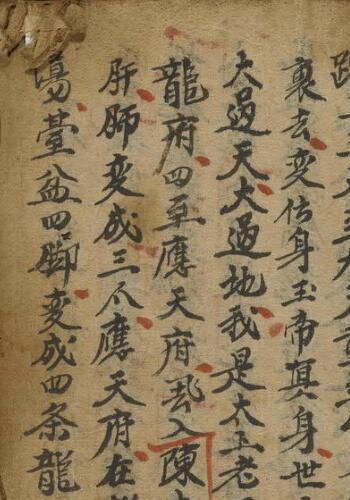 裏去变身玉帝真身世
大過天大過地我是太上老
龍府四應天府入陳
肝变成三爪應天府在
場臺盆四脚变成四条龍